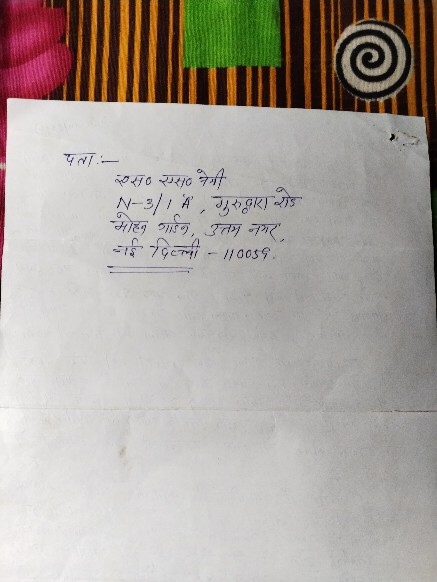 पता:-
एस० एस० नेगी
N-3/1 'A', गुरुद्वारा रोड
मोहन गार्डन, उत्तम नगर,
नई दिल्ली - 110059.